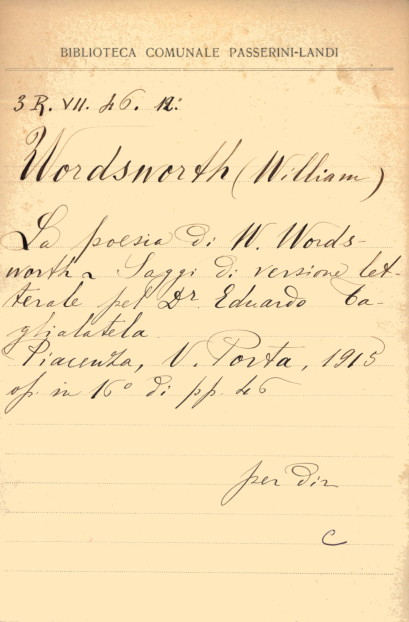 BIBLIOTECA COMUNALE PASSERINI-LANDI
3 R. VII. 46. 12:
Wordsworth (William)
La poesia di W. Words-
worth. Saggi di versione let-
terale pel Dr. Eduardo Ta-
glialatela.
Piacenza, V. Porta, 1915
op. in 16° di pp. 46
per dir
C